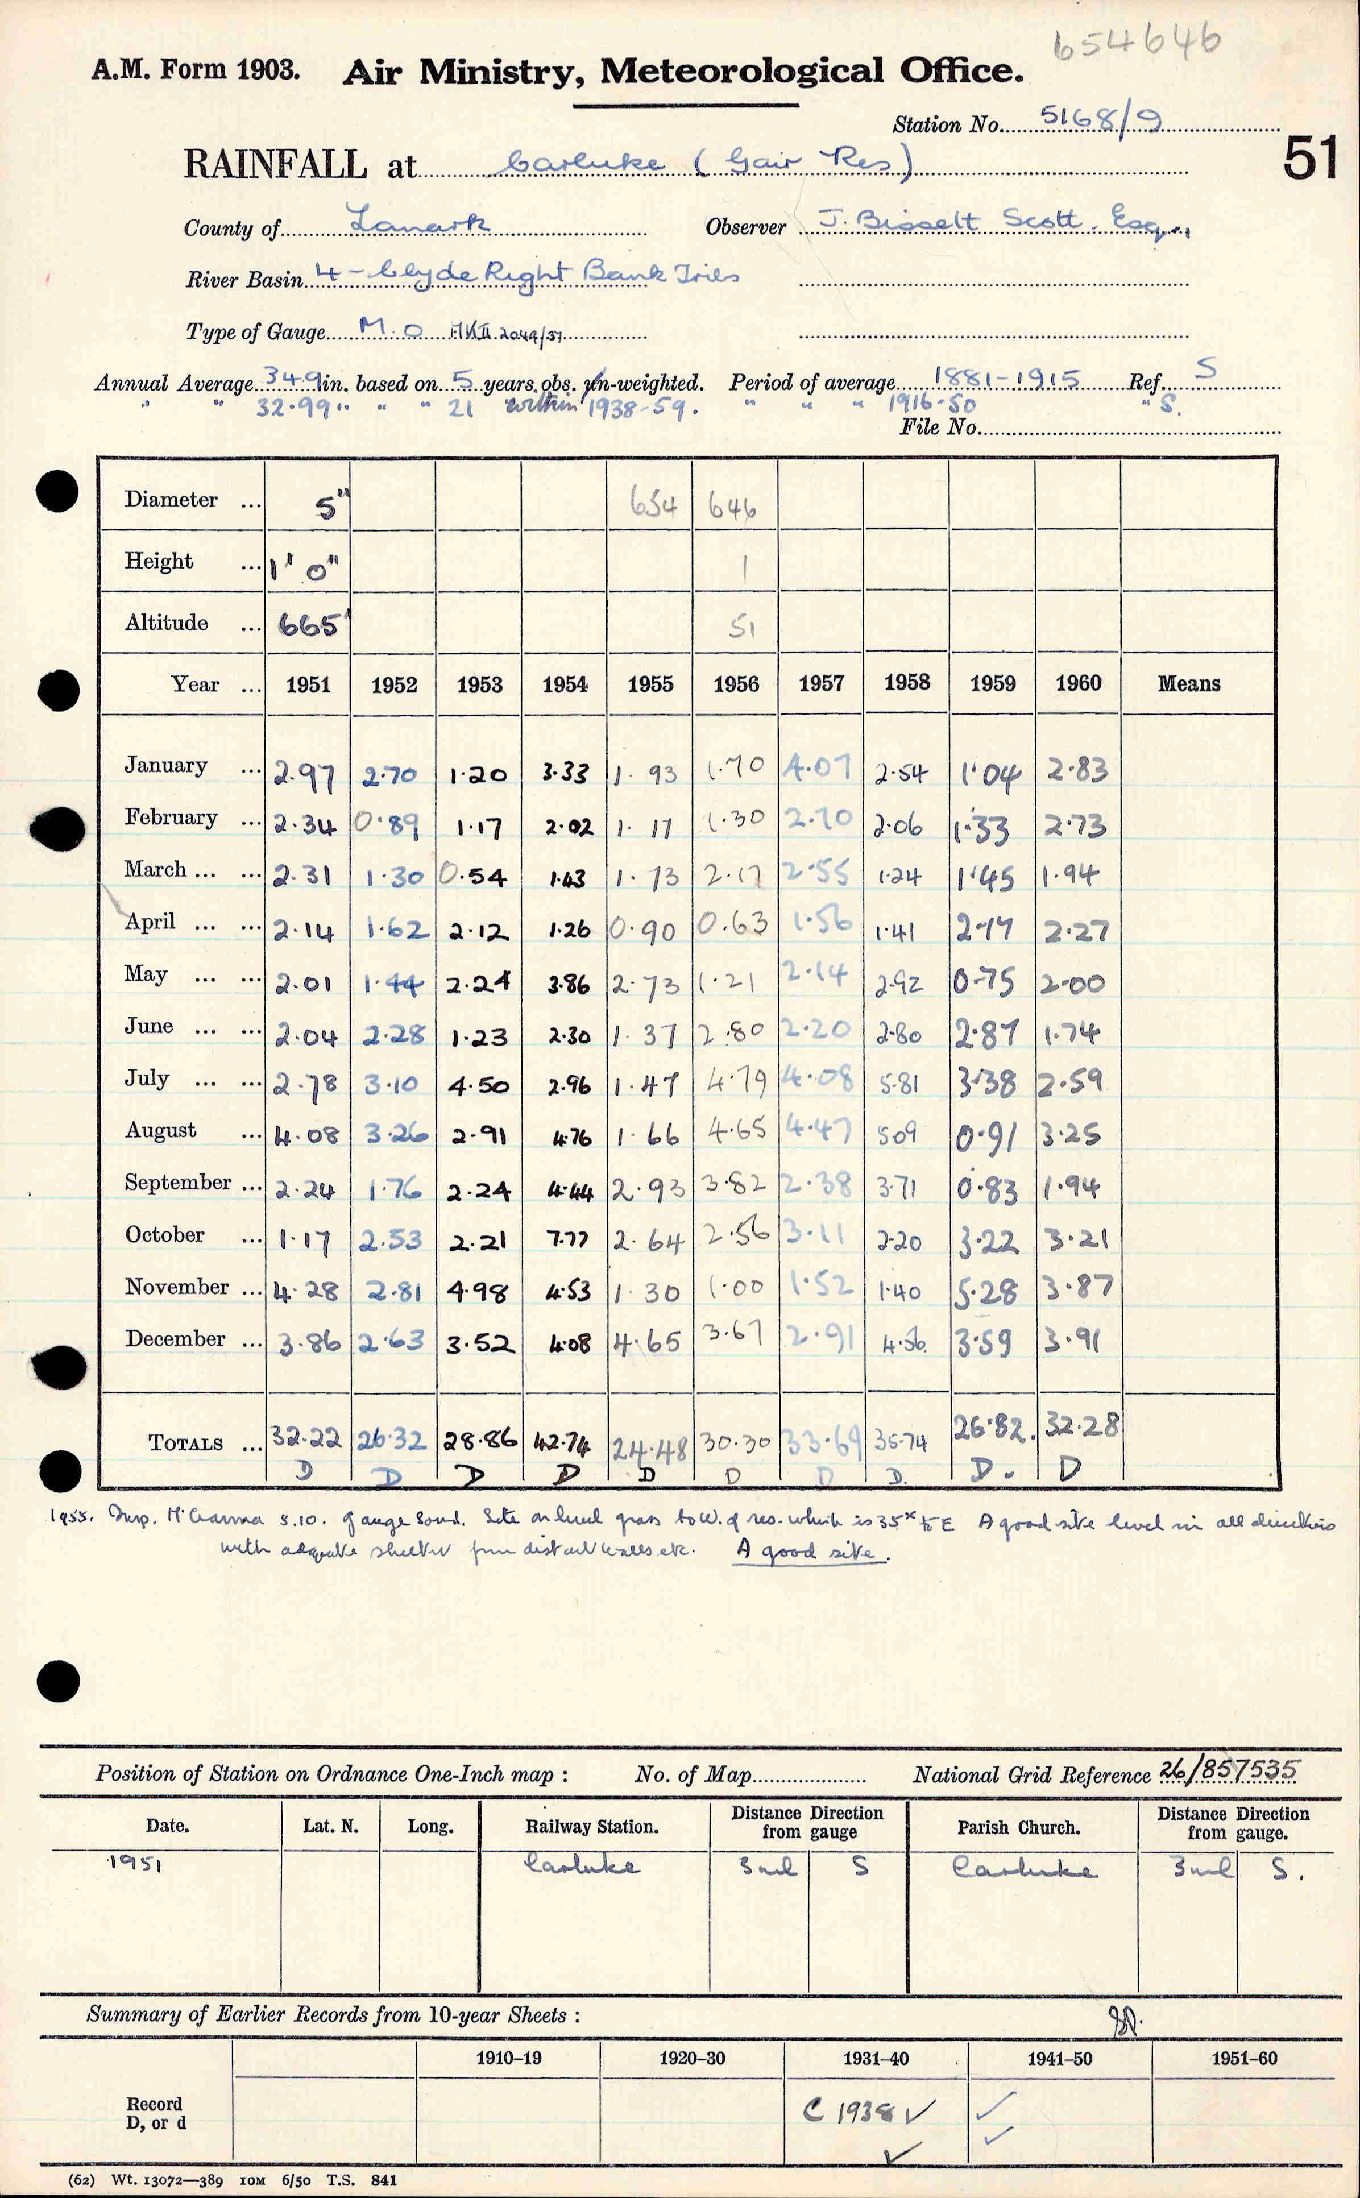 654646
A.M. Form 1903. Air Ministry, Meteorological Office.
Station No. 5168/9
51
RAINFALL at Carluke (Gair Res)
County of Lanark Observer J. Bissett Scott. Esq.,
River Basin 4 - Clyde Right Bank Tribs
Type of Gauge M.O MKII 2049/51
Annual Average 34.9 in. based on 5 years obs. un-weighted. Period of average 1881-1915 Ref. S
" " 32.99 " " " 21 " within 1938-59. " " " 1916-50 " S.
File No.
Diameter ... 5" 654 646
Height ... 1' 0" 1
Altitude ... 665' 51
Year ... 1951 1952 1953 1954 1955 1956 1957 1958 1959 1960 Means
January ... 2.97 2.70 1.20 3.33 1.93 1.70 4.07 2.54 1.04 2.83
February ... 2.34 0.89 1.17 2.02 1.17 1.30 2.70 2.06 1.33 2.73
March ... ... 2.31 1.30 0.54 1.43 1.73 2.17 2.55 1.24 1.45 1.94
April ... ... 2.14 1.62 2.12 1.26 0.90 0.63 1.56 1.41 2.17 2.27
May ... ... 2.01 1.44 2.24 3.86 2.73 1.21 2.14 2.92 0.75 2.00
June ... ... 2.04 2.28 1.23 2.30 1.37 2.80 2.20 2.80 2.87 1.74
July ... ... 2.78 3.10 4.50 2.96 1.47 4.79 4.08 5.81 3.38 2.59
August ... 4.08 3.26 2.91 4.76 1.66 4.65 4.47 5.09 0.91 3.25
September ... 2.24 1.76 2.24 4.44 2.93 3.82 2.38 3.71 0.83 1.94
October ... 1.17 2.53 2.21 7.77 2.64 2.56 3.11 2.20 3.22 3.21
November ... 4.28 2.81 4.98 4.53 1.30 1.00 1.52 1.40 5.28 3.87
December ... 3.86 2.63 3.52 4.08 4.65 3.67 2.91 4.56 3.59 3.91
TOTALS ... 32.22 26.32 28.86 42.74 24.48 30.30 33.69 35.74 26.82. 32.28
D D D D D D D D. D. D
1955. Insp. 5.10. gauge sound. Site on level grass to W. of res. which is 35x to E A good site level in all directions
with adequate shelter from distant walls etc. A good site.
Position of Station on Ordnance One-Inch map : No. of Map National Grid Reference 26/857535
Date. Lat. N. Long. Railway Station. Distance Direction from gauge Parish Church. Distance Direction from gauge.
1951 Carluke 3 ml S Carluke 3 ml S.
Summary of Earlier Records from 10-year Sheets :
1910-19 1920-30 1931-40 1941-50 1951-60
Record
D, or d
C 1938 ✓ ✓
✓ ✓
(62) Wt. 13072—389 10M 6/50 T.S. 841